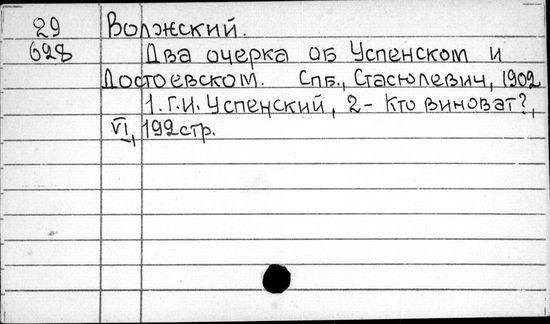 29 Волжский.
628 Два очерка об Успенском и
Достоевском. Спб., Стасюлевич, 1902
1. Г.И. Успенский, 2- Кто виноват?,
VI, 192 стр.